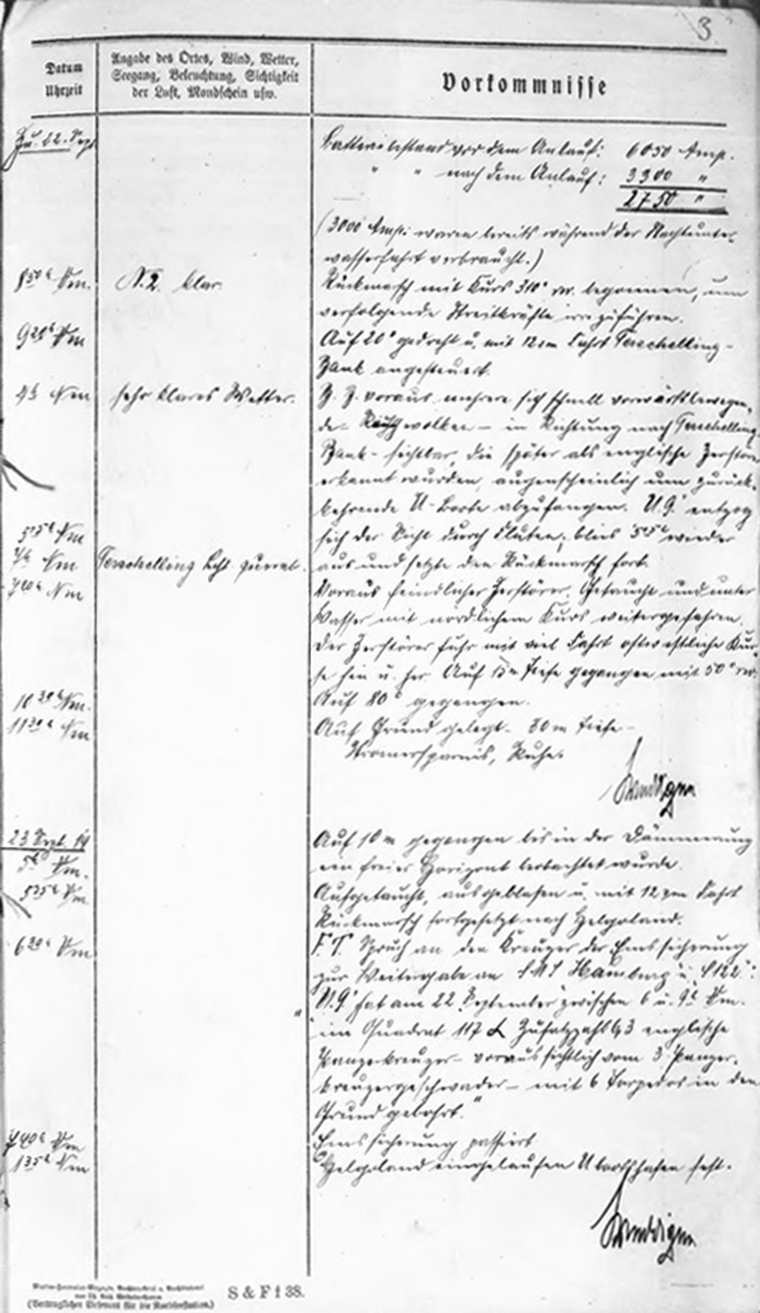 3.
Datum
Uhrzeit
Angabe des Ortes, Wind, Wetter,
Seegang, Beleuchtung, Sichtigkeit
der Luft, Mondschein usw.
Vorkommnisse
Zu. 22. Sept.
Batteriebestand vor dem Anlauf: 6050 Amp.
" " nach dem Anlauf: 3300 "
2750 "
(3000 Amp. waren bereits während der Nachtunter-
wasserfahrt verbraucht.)
8 50 h Vm.
N. 2. klar.
Rückmarsch mit Kurs 310° rw. begonnen, um
verfolgende Streitkräfte irre zuführen.
Vm
Auf 20° gedreht u. mit 12 sm Fahrt Terschelling-
Bank angesteuert.
4h Nm
sehr klares Wetter.
voraus mehrere sich schnell vorwärtsbewegen-
de Rauchwolken – in Richtung nach Terschelling
Bank – sichtbar, die später als englische Zerstörer
erkannt wurden, augenscheinlich um zurück-
kehrende U-Boote abzufangen. "U.9" entzog
sich der Sicht durch Fluten, blies wieder
Nm
aus und setzte den Rückmarsch fort.
Nm
Terschelling querab.
Nm
Voraus feindlicher Zerstörer. Getaucht und unter
Wasser mit nördlichem Kurs weitergefahren.
Der Zerstörer fuhr mit viel Fahrt ostwestliche Kur-
se hin u. her. Auf 15 m Tiefe gegangen mit 50° rw.
10 30 h Nm.
Auf 80° gegangen.
11 30 h Nm
Auf Grund gelegt – 30 m Tiefe –
Stromersparnis, Ruhe.
Weddigen
23 Sept. 14
Vm.
Auf 10 m gegangen bis in der Dämmerung
ein freier Horizont beobachtet wurde.
5 35 h Vm.
Aufgetaucht, ausgeblasen u. mit 12 sm Fahrt
Rückmarsch fortgesetzt nach Helgoland.
Vm
F.T. Spruch an den Kreuzer der Emssicherung
zur Weitergabe an S.M.S "Hamburg" u. "S 122":
"U.9" hat am 22. September zwischen 6 u. 9h Vm.
im Quadrat 117 Zusatzzahl 3 englische
Panzerkreuzer – voraussichtlich vom 3. Panzer-
kreuzergeschwader – mit 6 Torpedos in den
Grund gebohrt."
7 40 h Vm
Emssicherung passiert
1 35 h Nm
Helgoland eingelaufen Ubootshafen fest.
Weddigen
S & F I 38.
(Vertraglicher Lieferant für die Nordseestation.)